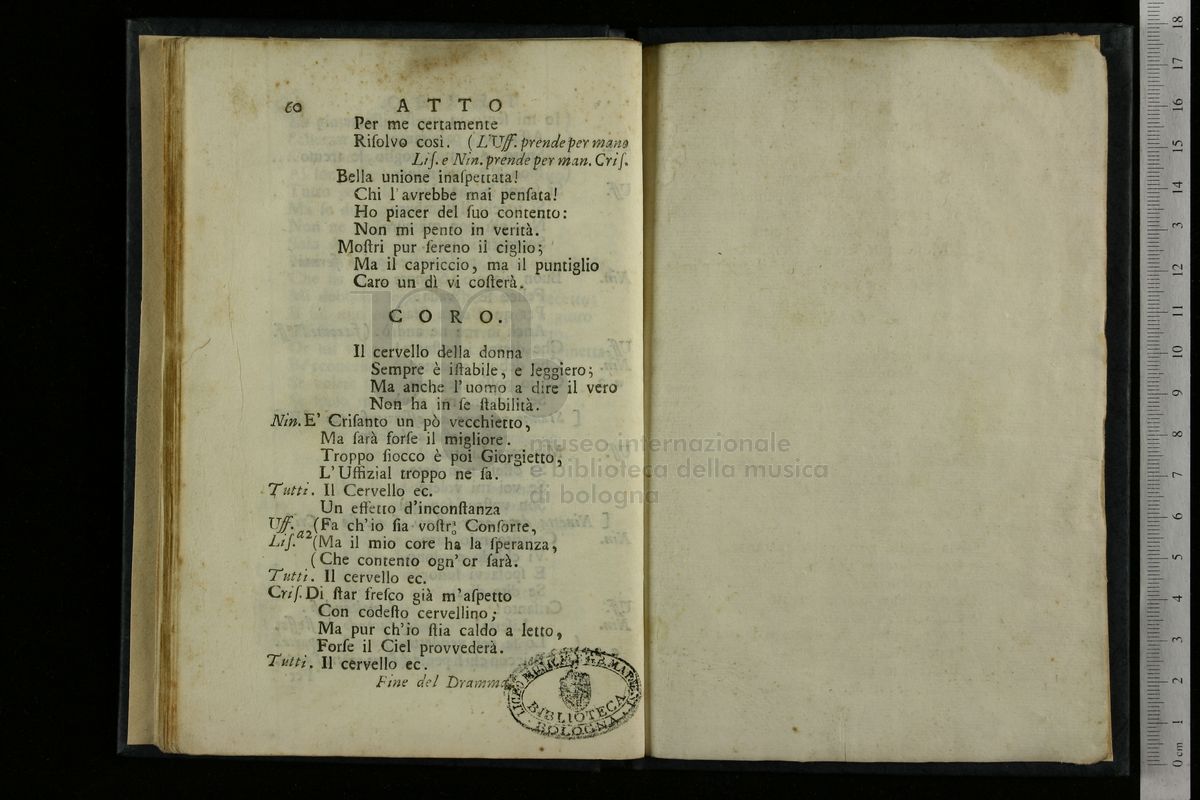 60 ATTO
Per me certamente
Riſolvo così. (L'Uff. prende per mano
Liſ. e Nin. prende per man. Criſ.
Bella unione inaſpettata!
Chi l'avrebbe mai penſata!
Ho piacer del ſuo contento:
Non mi pento in verità.
Moſtri pur ſereno il ciglio;
Ma il capriccio, ma il puntiglio
Caro un dì vi coſterà.
CORO.
Il cervello della donna
Sempre è iſtabile, e leggiero;
Ma anche l'uomo a dire il vero
Non ha in ſe ſtabilità.
Nin. E' Criſanto un pò vecchietto,
Ma ſarà forſe il migliore.
Troppo ſiocco è poi Giorgietto,
L'Uffizial troppo ne ſa.
Tutti. Il Cervello ec.
Un effetto d'inconſtanza
Uff. (Fa ch'io ſia voſtro Conſorte,
Liſ. a2 (Ma il mio core ha la ſperanza,
(Che contento ogn'or ſarà.
Tutti. Il cervello ec.
Criſ. Di ſtar freſco già m'aſpetto
Con codeſto cervellino;
Ma pur ch'io ſtia caldo a letto,
Forſe il Ciel provvederà.
Tutti. Il cervello ec.
Fine del Dramma
BIBLIOTECA
BOLOGNA
museo internazionale
e biblioteca della musica
di bologna
0 cm 1 2 3 4 5 6 7 8 9 10 11 12 13 14 15 16 17 18